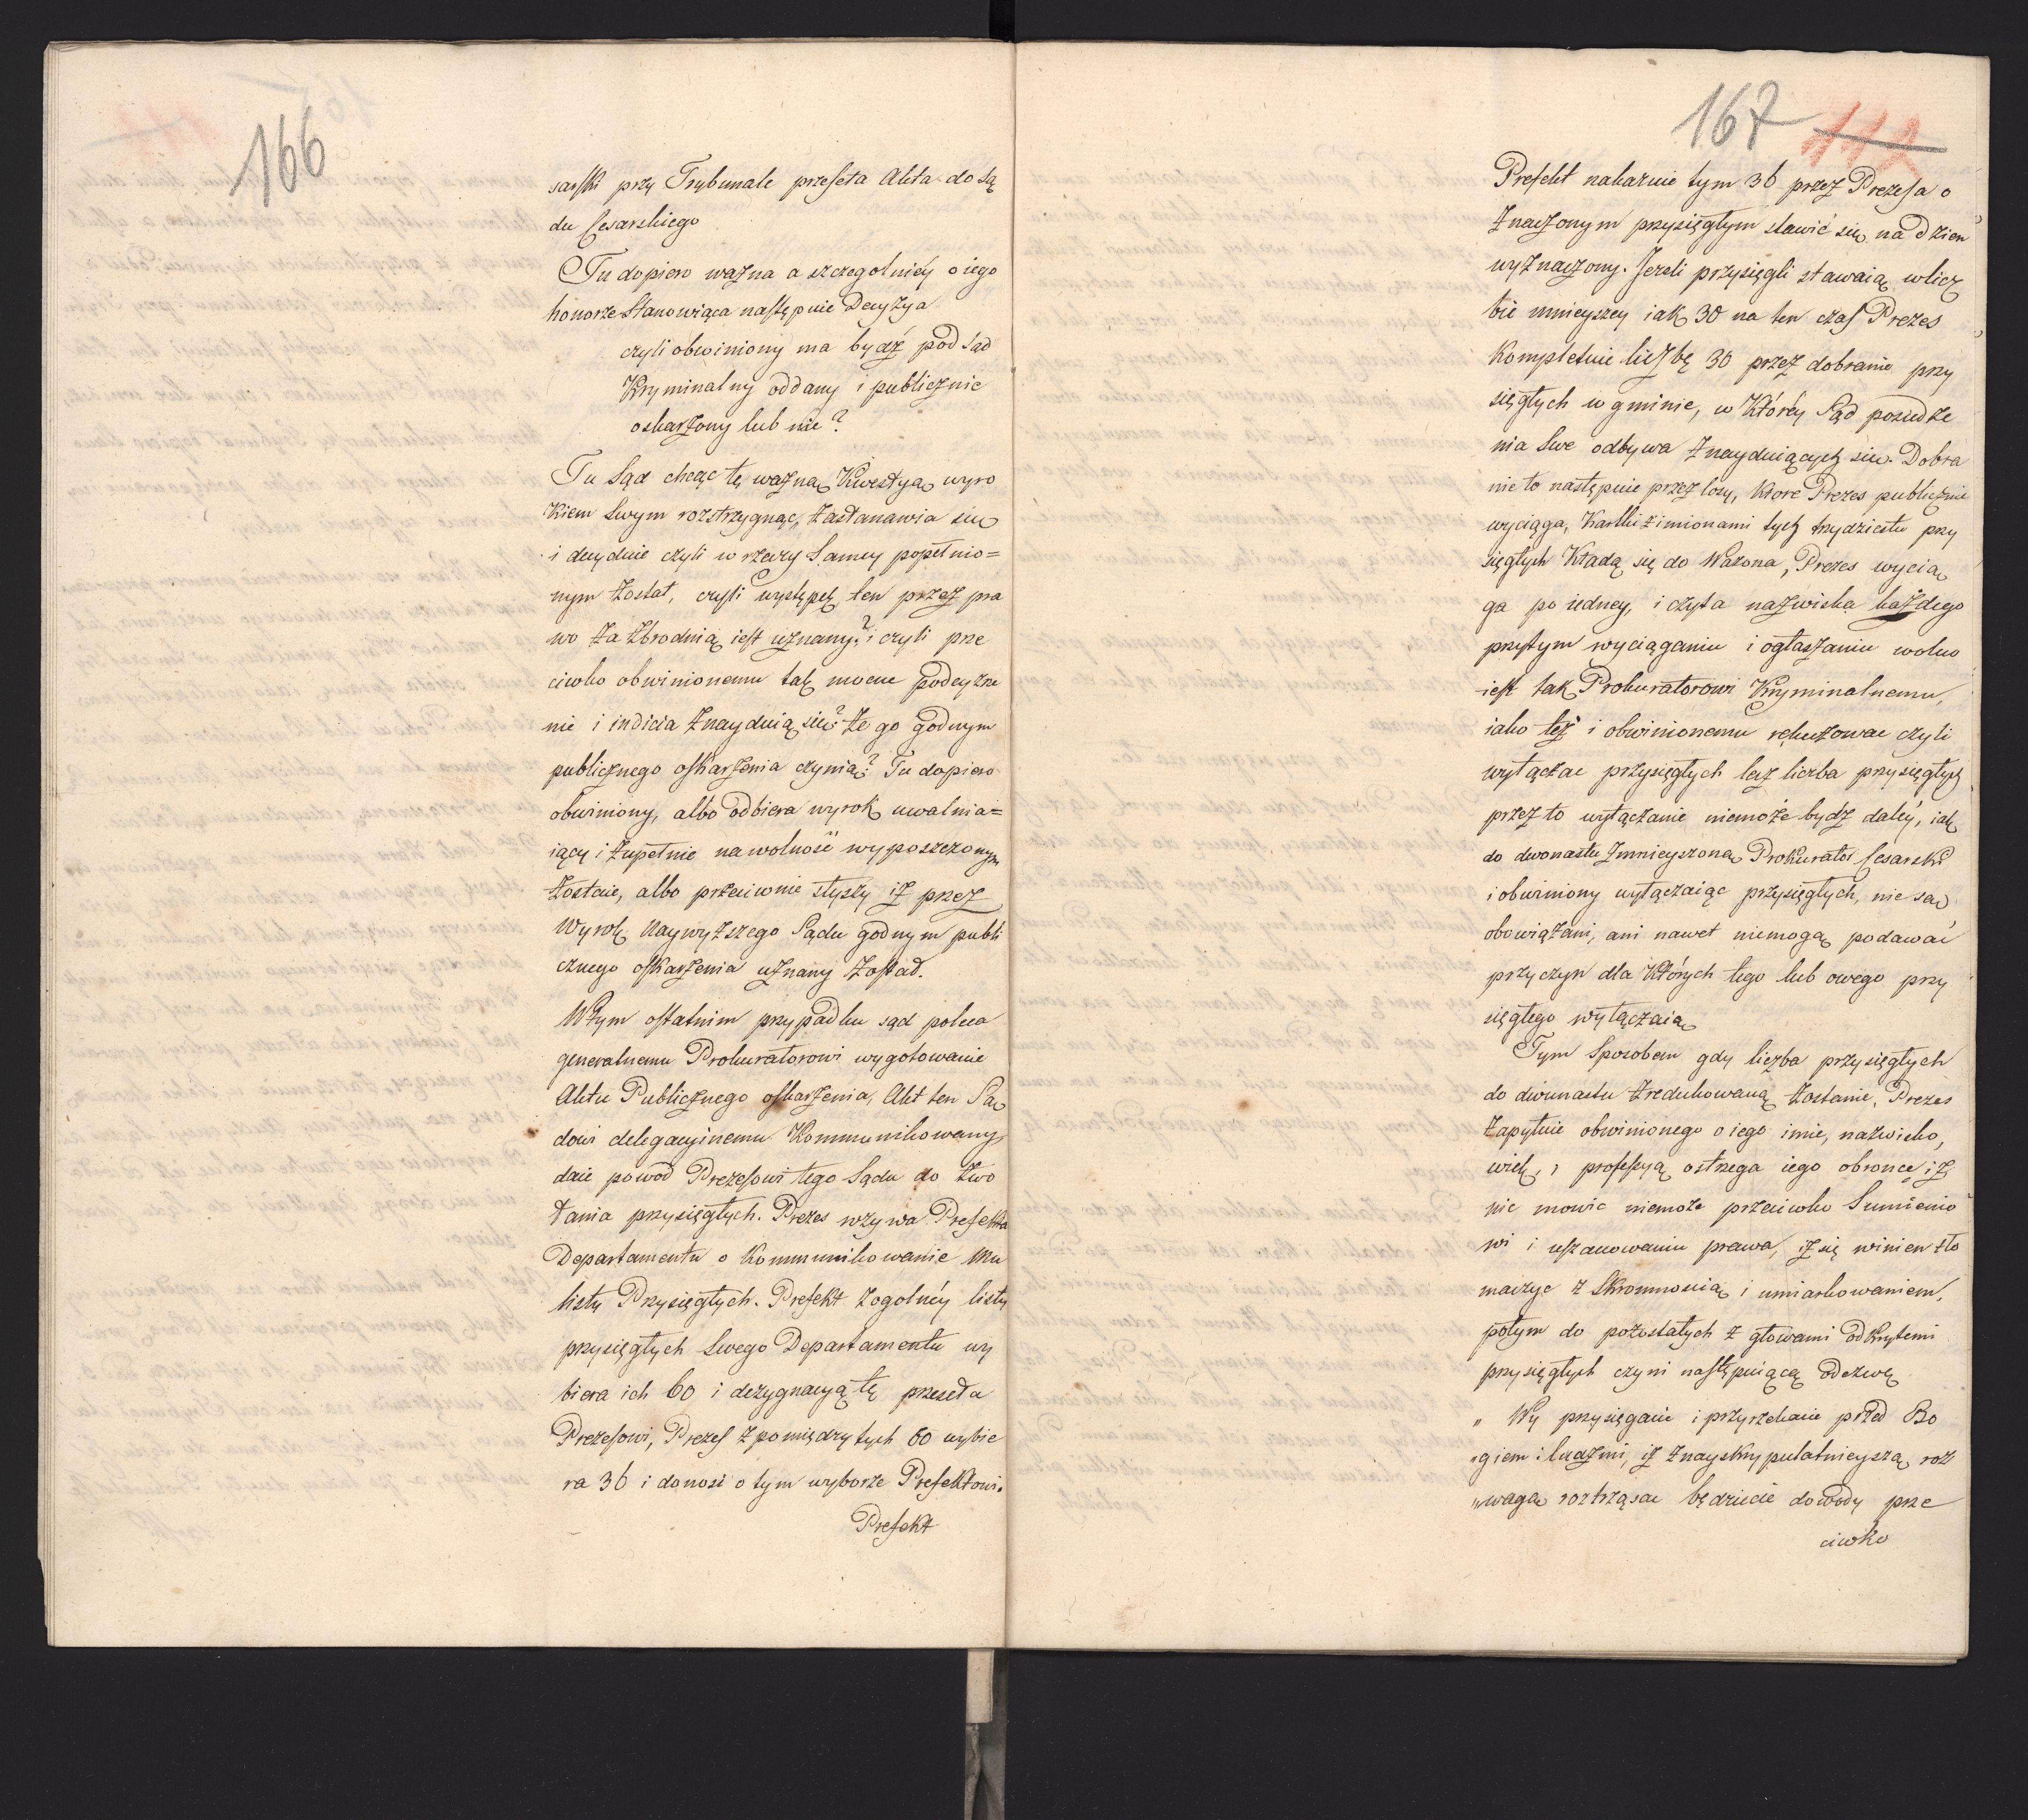 166
sarski przy Trybunale przeseła Akta do Są
du Cesarskiego
Tu dopiero ważna a szczegolniéy o iego
honorze Stanowiąca nastepuie Decyzya
czyli obwiniony ma bydź pod Sąd
Kryminalny oddany i publicznie
oskarżony lub nie?
Tu Sąd chcąc tę ważną Kwestyą wyro
kiem Swym rozstrzygnąc, zastanawia się
i decyduie czyli w rzeczy Samey popełnio=
nym został, czyli występek ten przez pra
wo za zbrodnią iest uznany? i czyli prze
ciwko obwinionemu tak mocne podeyrze
nie i indicia znayduią się? że go godnym
publicznego oskarżenia czynią? Tu dopiero
obwiniony, albo odbiera wyrok uwalnia=
iący i zupełnie na wolność wyposzczonym
zostaie, albo przeciwnie słyszy iż przez
Wyrok Naywyższego Sądu godnym publi
cznego oskarżenia uznany został.
W tym ostatnim przypadku sąd poleca
generalnemu Prokuratorowi wygotowanie
Aktu Publicznego oskarżenia, Akt ten Są
dowi delegacyinemu Kommunikowany
daie powod Prezesowi tego Sądu do zwo
łania przysięgłych. Prezes wzywa Prefekta
Departamentu o Kommunikowanie Mu
listy Przysięgłych. Prefekt z ogolnéy listy
przysięgłych Swego Departamentu wy
biera ich 60 i dezygnacyą tę przeseła
Prezesowi, Prezes z pomiędzy tych 60 wybie
ra 36 i donosi o tym wyborze Prefektowi.
Prefekt
167 112
Prefekt nakazuie tym 36 przez Prezesa o
znaczonym przysięgłym stawić się na dzien
wyznaczony. Jeżeli przysięgli stawaią w licz
bie mnieyszey iak 30 na ten czas Prezes
Kompletuie liczbę 30 przez dobranie przy
sięgłych w gminie, w któréy Sąd posiedze
nia Swe odbywa znayduiących się. Dobra
nie to następuie przez losy, ktore Prezes publicznie
wyciąga, Kartki z imionami tych trzydziestu przy
sięgłych Kładą się do Wazona, Prezes wycią
ga po iedney, i czyta nazwiska każdego
przy tym wyciąganiu i ogłaszaniu wolno
iest tak Prokuratorowi Kryminalnemu,
iako też i obwinionemu rekuzowac czyli
wyłączac przysięgłych lecz liczba przysięgłych
przez to wyłączanie niemoże bydź daléy, iak
do dwonastu zmnieyszoną Prokurator Cesarski
i obwiniony wyłączaiąc przysięgłych, nie są
obowiązani, ani nawet niemogą podawać
przyczyn dla których tego lub owego przy
sięgłego wyłączaią
Tym Sposobem gdy liczba przysięgłych
do dwunastu zredukowaną zostanie, Prezes
zapytuie obwinionego o iego imie, nazwisko,
wiek, i professyą ostrzega iego obronce iż
nic mowic niemoże przeciwko Sumienio
wi i uszanowaniu prawa, iż się winien tło
maczyc z Skromnością i umiarkowaniem,
potym do pozostałych z głowami odkrytemi
przysięgłych czyni następuiącą odezwę
" Wy przysięgacie i przyrzekacie przed Bo
"giem i ludźmi, iż z nayskrypulatnieyszą roz
"wagą roztrząsac będziecie dowody prze
ciwko